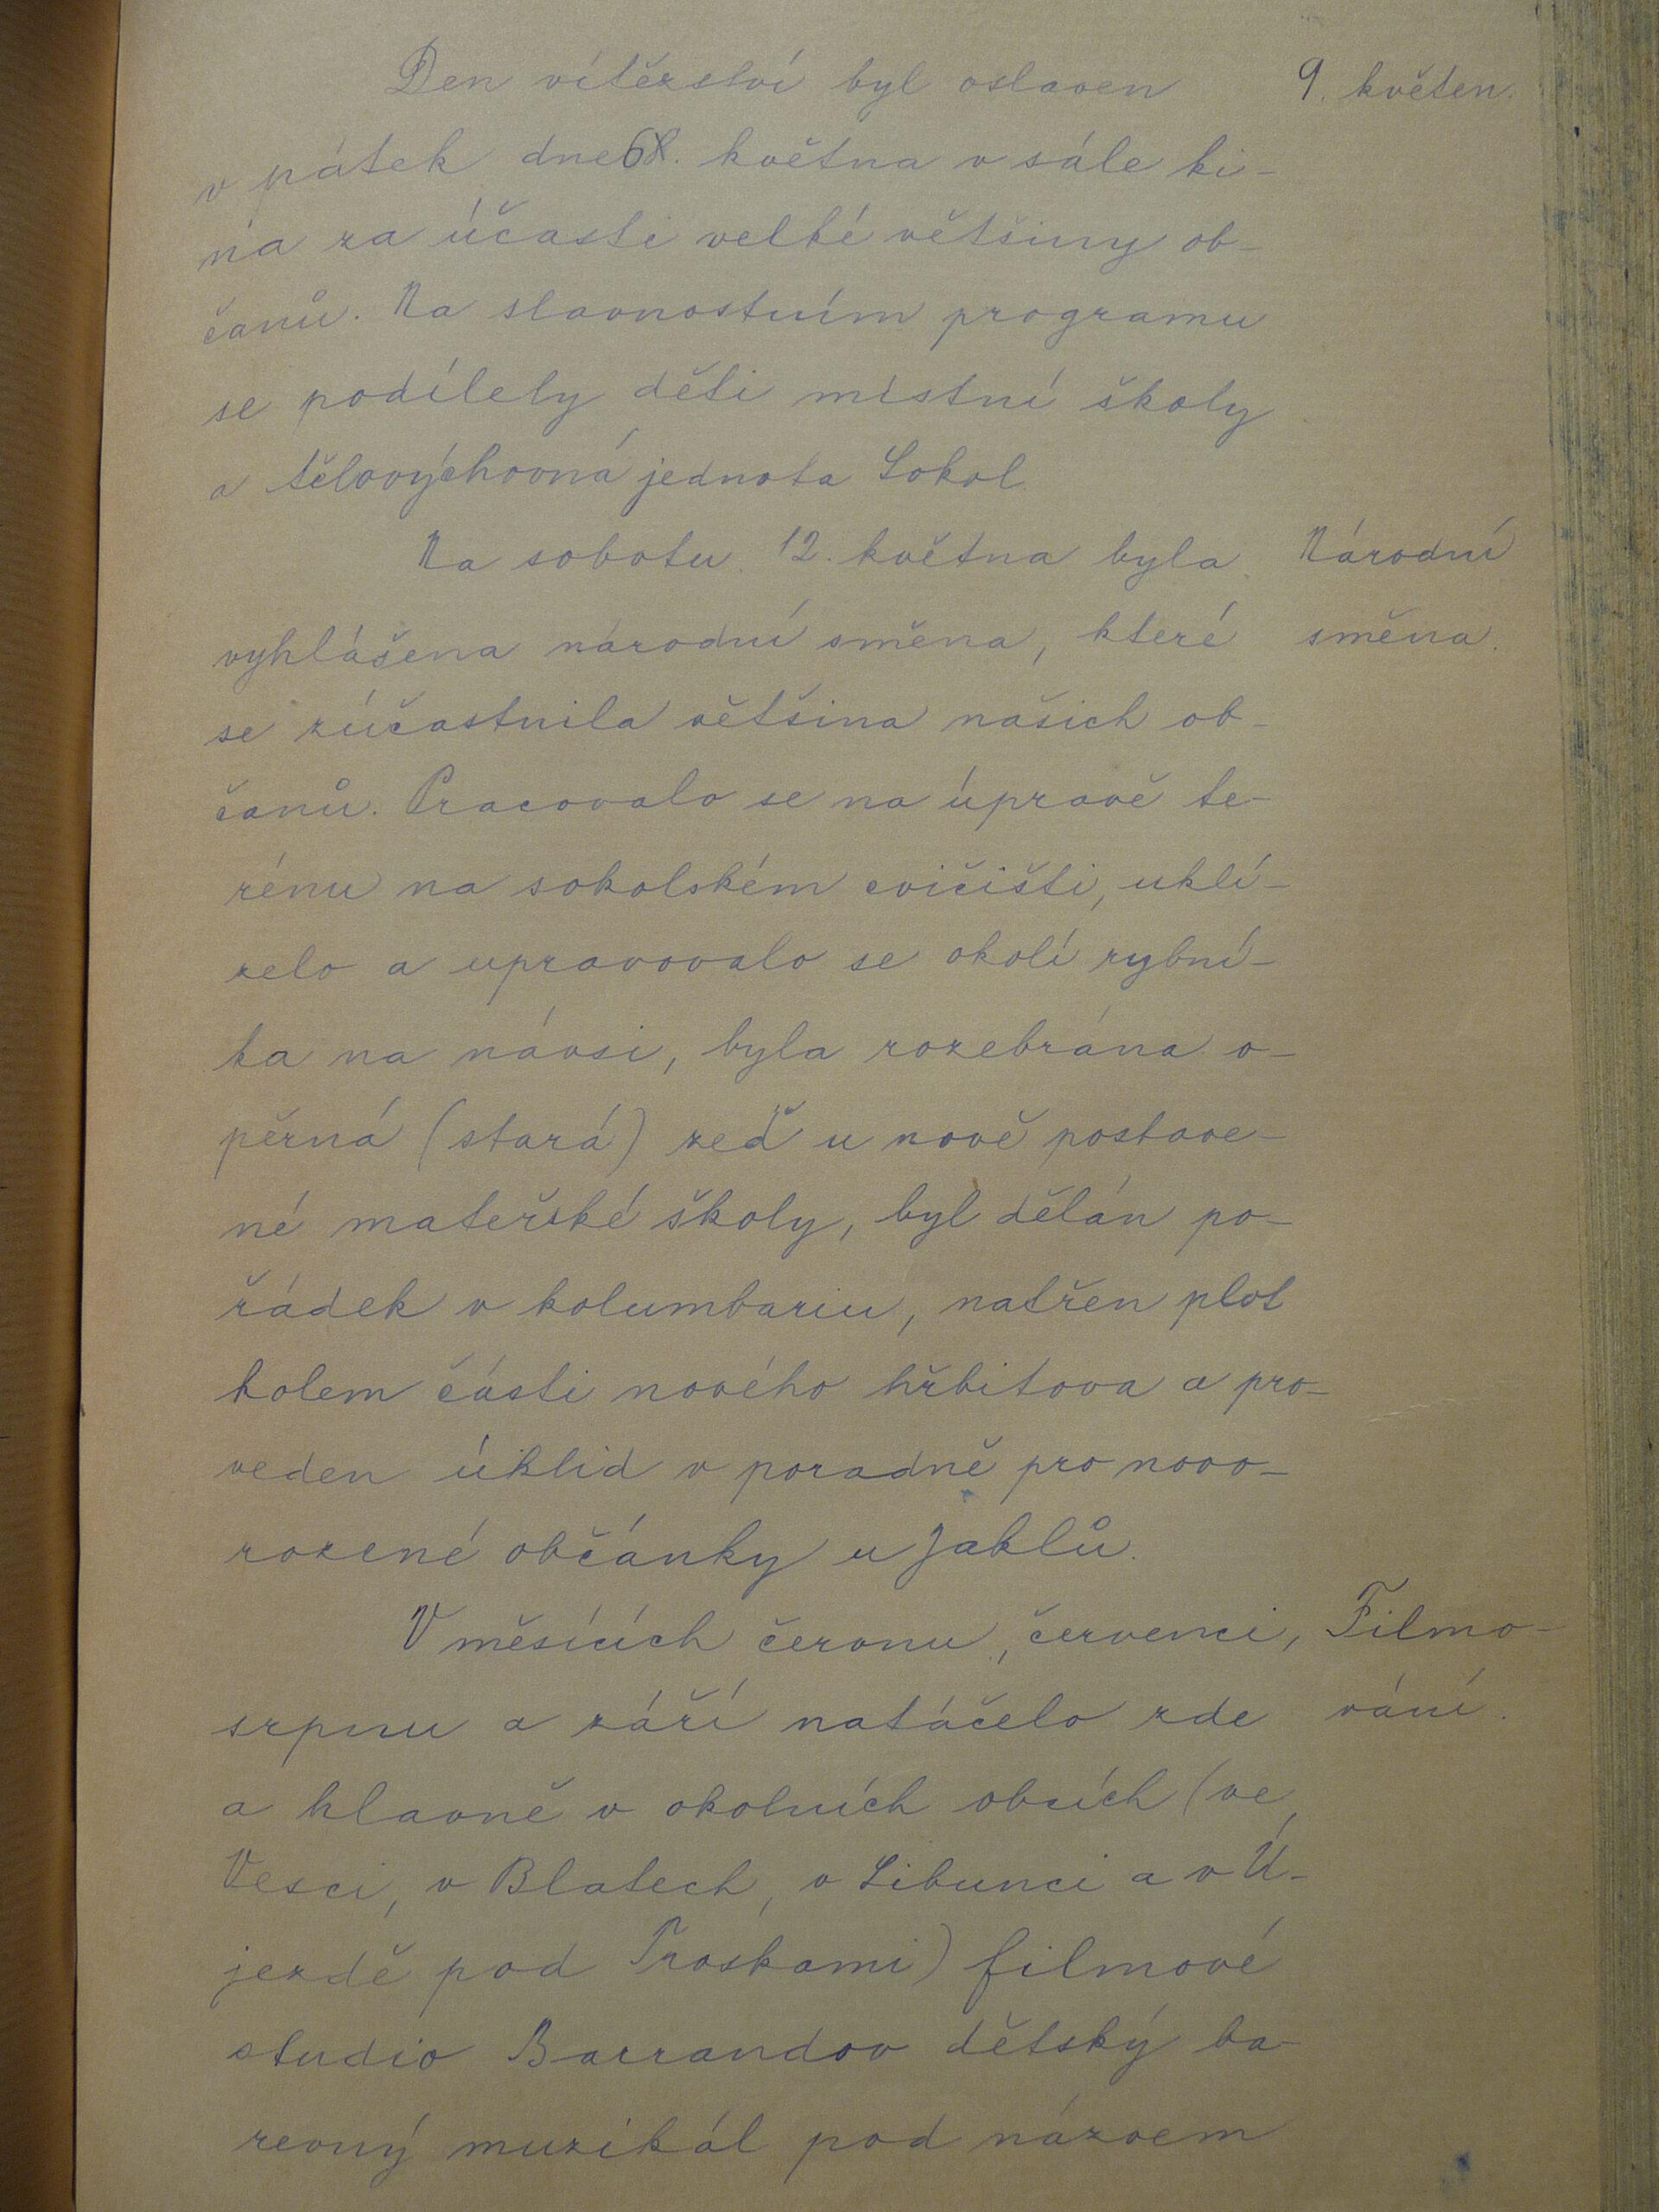 Den vítězství byl oslaven 9. květen.
v pátek dne 6. května v sále ki-
na za účasti velké většiny ob-
čanů. Na slavnostním programu
se podílely děti místní školy
a tělovýchovná jednota Sokol.
Na sobotu 12. května byla Národní
vyhlášena národní směna, které směna.
se zúčastnila většina našich ob-
čanů. Pracovalo se na úpravě te-
rénu na sokolském cvičišti, uklí-
zelo a upravovalo se okolí rybní-
ka na návsi, byla rozebrána o-
pěrná (stará) zeď u nově postave-
né mateřské školy, byl dělán po-
řádek v kolumbariu, natřen plot
kolem části nového hřbitova a pro-
veden úklid v poradně pro novo-
rozené občánky u Jaklů.
V měsících červnu, červenci, Filmo-
srpnu a září natáčelo zde vání.
a hlavně v okolních obcích (ve
Vesci, v Blatech, v Libunci a v Ú-
jezdě pod Troskami) filmové
studio Barrandov dětský ba-
revný muzikál pod názvem